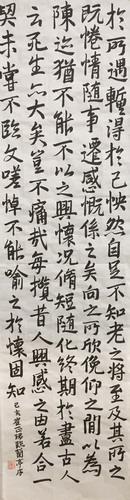 於所遇蹔得於己怏然自足不知老之將至及其所之
既惓情隨事遷感慨係之矣向之所欣俛仰之間以為
陳迹猶不能不以之興懷況脩短隨化終期於盡古人
云死生亦大矣豈不痛哉每攬昔人興感之由若合一
契未嘗不臨文嗟悼不能喻之於懷固知
己亥 蘭亭序